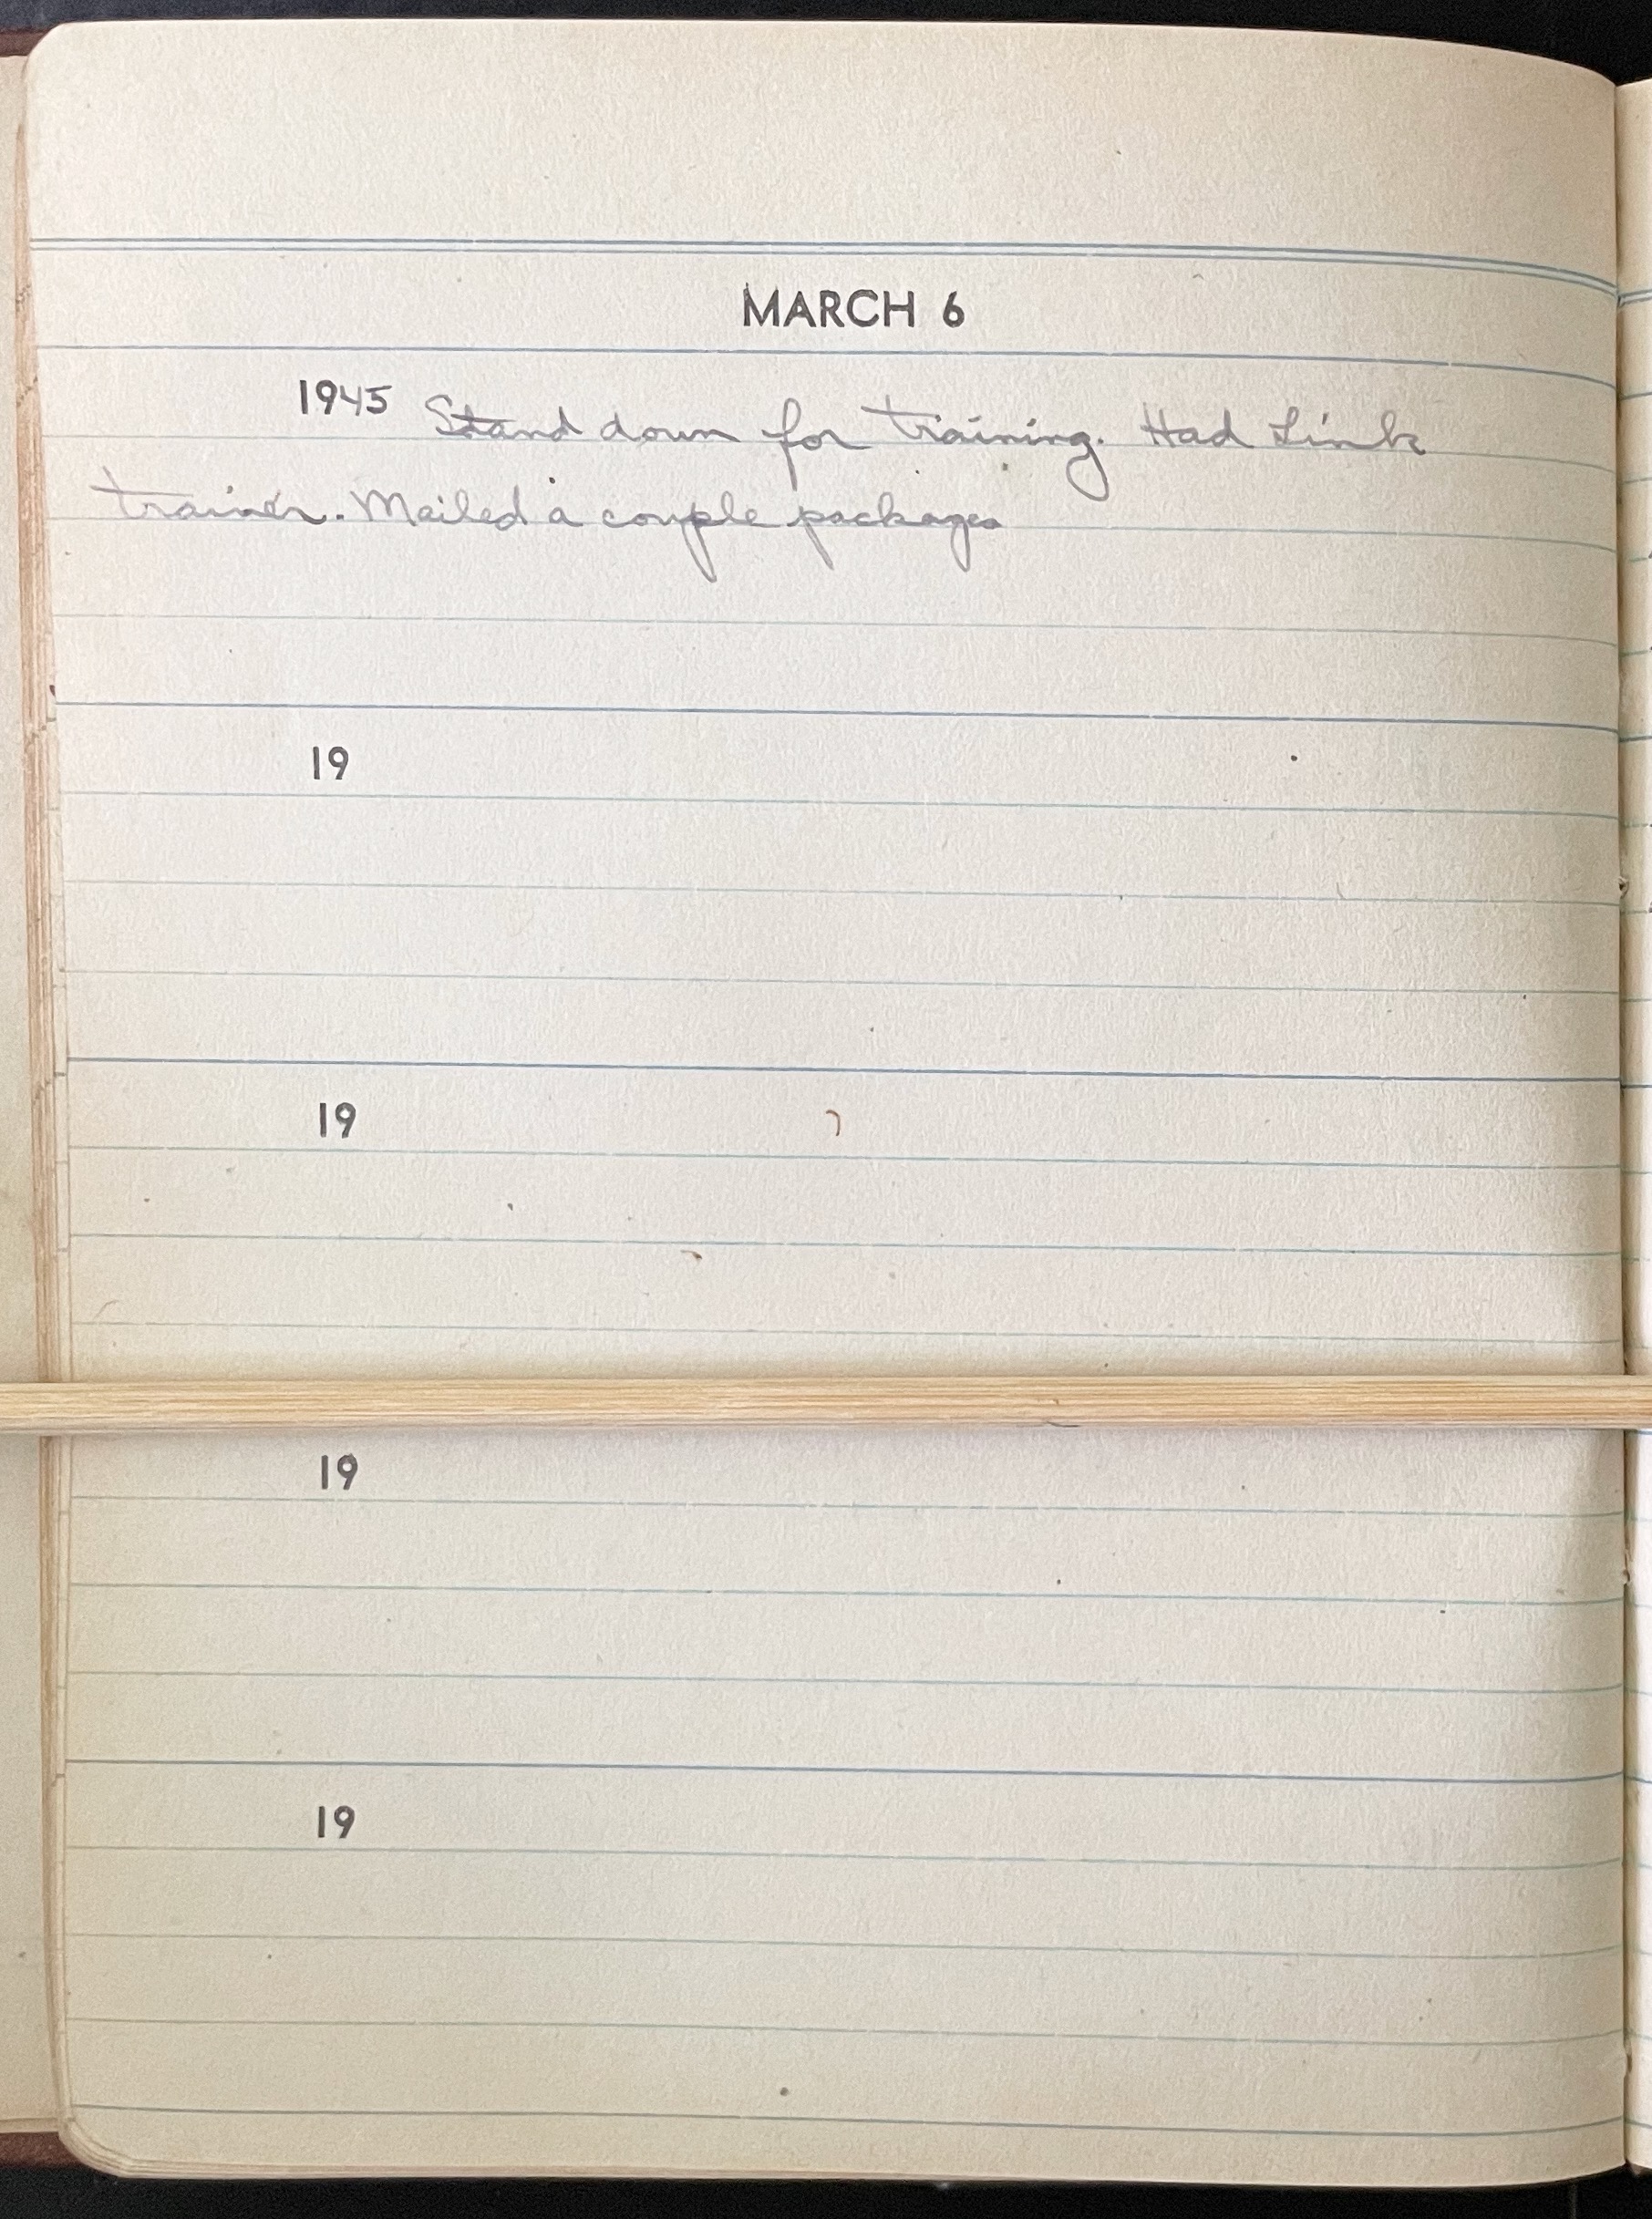 MARCH 6
1945 Stand down for training. Had Link
trainer. Mailed a couple packages
19
19
19
19